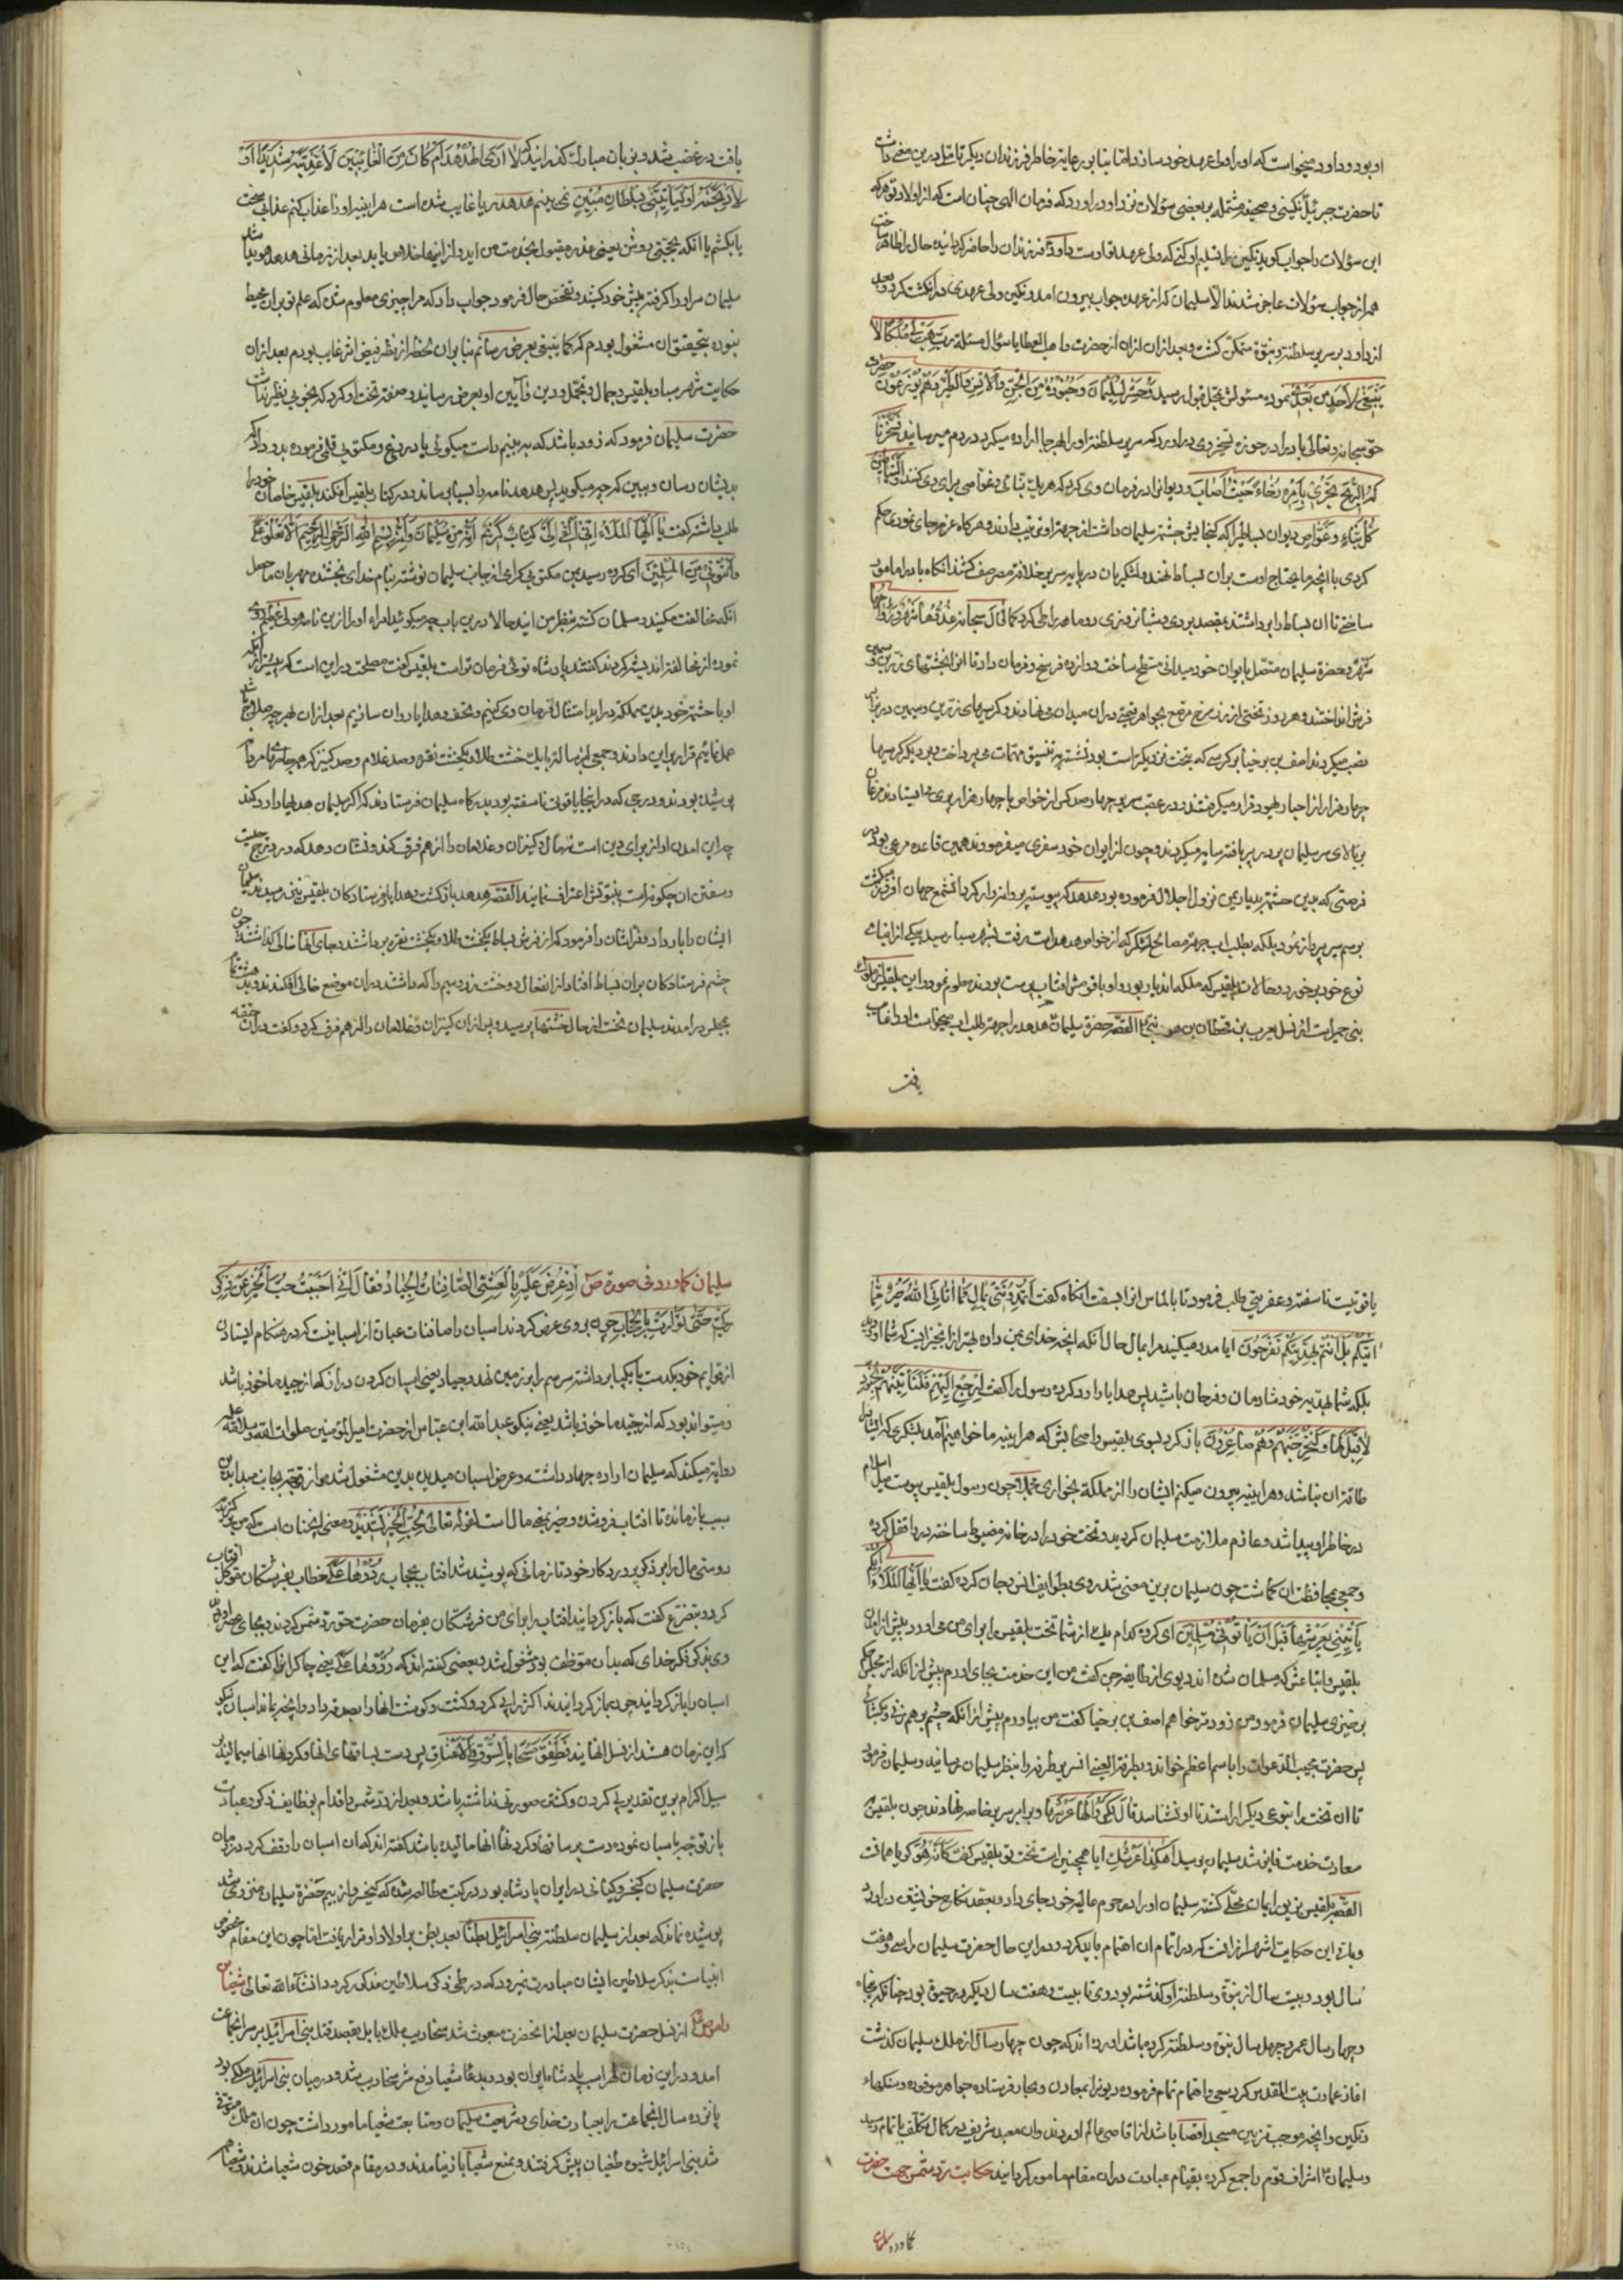 او بود و داود میخواست که او را ولی عهد خود سازد اما بنا بر رعایة خاطر فرزندان دیگر تامل درین معنی داشت
تا حضرت جبرئیل نگینی و صحیفه مشتمله بر بعضی سؤلات نزد داود آورد که فرمان الهی چنان است که از اولاد تو هر که
این سؤلات را جواب کوید نکین را تسلیم او کنی که ولی عهد تو اوست داود فرزندان را حاضر کردانیده حال را ظاهر ساخت
همه از جواب سؤلات عاجز شدند الا سلیمان که از عهده جواب بیرون امد و نکین ولی عهدی در انکشت کرد و بعد
از داود بر سریر سلطنة و نبوة متمکن کشت و بعد ازان از حضرت واهب العطایا سؤال مسئلة رب هب لی ملکا لا
ینبغی لاحد من بعدی نموده مسئولش بمحل قبول رسید و حشر لسلیمان و جنوده من الجن والانس والطیر فهم یوزعون حضرت
حق سبحانه و تعالی باد را در حوزه تسخیر وی در اورد که سریر سلطنة او را بهر جا اراده میکرد در دم میرسانید فسخرنا
له الریح تجری بامره رخاء حیث اصاب و دیوان در فرمان وی کرد که هر یک بنائی و غواصی برای وی کنند والشیاطین
کل بناء و غواص دیوان بساطی را که کنجایش حشمة سلیمان داشت از جهة او ترتیب دادند و هرکاه عزم جای نمودی حکم
کردی با انچه ما یحتاج اوست بران بساط نهند و لشکریان در پایه سریر خلافة مصر صف کشند انکاه باد را مامور
ساختی تا ان بساط را برداشته بمقصد بردی و شبانروزی دو ماهه راه طی کرد کما قال سبحانه غدوها شهر و رواحها
شهر و حضرة سلیمان متصل بایوان خود میدانی مسطح ساخت دوازده فرسخ و فرمان داد تا انرا بخشتهای زرین و سیمین
فرش انداختند و هر روز تختی از زر سرخ مرصع بجواهر قیمتی در ان میدان می نهادند و کرسیهای زرین و سیمین در برابر
نصب میکردند اصف بن برخیا بر کرسی که بتخت نزدیکتر است بود نشسته به تنسیق مهمات می پرداخت و بر دیکر کرسیها
چهار هزار از احبار یهود قرار میکرفتند و در عقب سریر چهارصد کس از خواص با چهار هزار پری می ایستادند و مرغان
بر بالای سر سلیمان پر در پر بافته سایه میکردند و چون از ایوان خود سفری میفرمودند همین قاعده مرعی بود در
فرصتی که بدین حشمة بدیار یمن نزول اجلال فرموده بود هدهد که پیوسته پروانه وار کرد ان شمع جهان افروز میکشت
برسم سیر پرواز نمود بلکه بطلب اب جهة مصالح لشکر که از خواص هدهد است برفت بشهر سبا رسید بیکی از ابنای
نوع خود برخورد و حالات بلقیس که ملکه اندیار بود و او با قومش افتاب پرست بودند معلوم نمود و این بلقیس از ملوک
بنی حمیر است از نسل یعرب بن قحطان بن هود نبی ع القصه حضرة سلیمان هدهد را جهة طلب اب میخواست او را غایب
یافت
یافت در غضب شد و بزبان مبارک کذرانید که لا اری الهدهد ام کان من الغائبین لاعذبنه عذابا شدیدا او
لاذبحنه او لیاتینی بسلطان مبین نمی بینم هدهد را یا غایب شده است هراینه او را عذاب کنم عذابی سخت
یا بکشم یا انکه بحجتی روشن یعنی عذر مقبول بخدمت من اید و از اینها خلاص یابد بعد از زمانی هدهد هویدا شد
سلیمان سر او را کرفته پیش خود کشید و تفحص حال فرمود جواب داد که مرا چیزی معلوم شد که علم تو بران محیط
نبوده بتحقیق ان مشغول بودم که کما ینبغی بعرض رسانم بنا بران لحظه از نظر فیض اثر غایب بودم بعد ازان
حکایت شهر سبا و بلقیس و جمال و تجمل و دین و آیین او بعرض رسانید و صفة تخت او کرد که بخوبی نظیر نداشت
حضرت سلیمان فرمود که زود باشد که به بینیم راست میکوئی یا دروغ و مکتوبی قلمی فرموده بدو داد که
بدیشان رسان و ببین که چه میکوید پس هدهد نامه را بسبا رساند و در کنار بلقیس افکند بلقیس خاصان خود را
طلب داشته کفت یا ایها الملاء انی القی الی کتاب کریم انه من سلیمان وانه بسم الله الرحمن الرحیم الا تعلوا علی
واتونی مسلمین ای کروه رسید بمن مکتوبی کرامی از جانب سلیمان نوشته بنام خدای بخشنده مهربان ما حصل
انکه مخالفت مکنید و مسلمان کشته بنظر من ائید حالا درین باب چه میکوئید امراء او را ازین نامه هولی عظیم روی
نموده از مخالفة اندیشه کردند کفتند پادشاه توئی فرمان تراست بلقیس کفت مصلحت در این است که پیش از انکه
او با حشمة خود بدین مملکة در اید امتثال فرمان وی کنیم و تحف و هدایا روان سازیم بعد ازان بهر چه صلاح باشد
عمل نمائیم قرار برین دادند و جمعی را برسالة با یک خشت طلا و یکخشت نقره و صد غلام و صد کنیز که همه جامهای مردانه
پوشیده بودند و درجی که در انجا یاقوتی ناسفته بود بدرکاه سلیمان فرستادند که اکر سلیمان هدیها را رد کند
چشم فرستادکان بران بساط افتاد از انفعال دو خشت زر و سیم را که داشتند دران موضع خالی افکندند و بدهشت تمام
بمجلس در امدند سلیمان نخست از حال خشتها پرسید و پس ازان کنیزان و غلامان را از هم فرق کرد و کفت دران حقه
یاقوتیست ناسفته و عفریتی طلب فرمود تا بالماس انرا بسفت انکاه کفت اتمدوننی بمال فما اتانی الله خیر مما
اتیکم بل انتم بهدیتکم تفرحون ایا مدد میکنید مرا بمال حال آنکه انچه خدای بمن داده بهتر از انچیز ایست که شما اوردید
بلکه شما بهدیه خود شادمان و فرحان باشید پس هدایا را رد کرده رسول را کفت ارجع الیهم فلناتینهم بجنود
لا قبل لهم بها و لنخرجنهم وهم صاغرون باز کرد بسوی بلقیس و اصحابش که هراینه ما خواهیم آمد بلشکری که ایشانرا
طاقة ان نباشد و هراینه بیرون میکنم ایشان را از مملکة بخواری چون رسول بلقیس پیوست میل اسلام
در خاطر او پیدا شد و عازم ملازمت سلیمان کردید و تخت خود را در خانه مضبوط ساخته در را قفل کرده
و جمعی بمحافظت ان کماشت چون سلیمان برین معنی شد روی بطوایف انس و جان کرده کفت یا ایها الملاء ایکم
یاتینی بعرشها قبل ان یاتونی مسلمین ای کروه کدام یک از شما تخت بلقیس را برای من می اورد پیش از امدن
بلقیس و اتباعش که مسلمان شده اند دیوی از طایفه جن کفت من این خدمت بجای اورم پیش از انکه از مجلس حکم
برخیزی سلیمان فرمود من زودتر خواهم اصف بن برخیا کفت من بیاورم پیش از انکه چشم بر هم زنی و بکشائی
پس حضرت مجیب الدعوات را باسم اعظم خواند و بطرفة العینی سریر را بنظر سلیمان رسانید و سلیمان فرمود
تا ان تخت را بنوعی دیکر اراستند تا او نشناسد قال نکروا لها عرشها و برابر سریر خاصه نهادند چون بلقیس
سعادت خدمت فایز شد سلیمان پرسید اهکذا عرشک ایا همچنین است تخت تو بلقیس کفت کانه هو کویا همانست
القصه بلقیس بزیور ایمان محلی کشته سلیمان او را در حرم عالیه خود جای داد و بعقد نکاح خویش در اورد
و باقی این حکایت اشهر ازانست که در اتمام ان اهتمام باید کرد و در این حال حضرت سلیمان را سی و هفت
سال بود و بیست سال از نبوة و سلطنة او کذشته بود و وی تا بیست و هفت سال دیکر در حیوة بود چنانکه پنجاه
و چهار سال عمر و چهل سال نبوة و سلطنة کرده باشد اورده اند که چون چهار سال از ملک سلیمان کذشت
اغاز عمارت بیت المقدس کرد سعی و اهتمام تمام فرموده دیوانرا بمعادن و بحار فرستاده جواهر موفوره و سنکهاء
رنکین و انچه موجب تزیین مسجد اقصا باشد از اقاصی عالم اوردند و ان معبد شریف در کمال تکلف باتمام رسید
و سلیمان اشراف قوم را جمع کرده بقیام عبادت دران مقام مامور کردانید حکایت رد شمس جهت حضرت
سلیمان کما ورد فی صورة ص اذ عرض علیه بالعشی الصافنات الجیاد فقال انی احببت حب الخیر عن ذکر
ربی حتی توارت بالحجاب چون بر وی عرض کردند اسبان را صافنات عبارة از اسبانیست که در هنکام ایستادن
از قوایم خود یکدست یا یک پا برداشته سر سم را بر زمین نهد و جیاد یعنی اسپان کردن دراز که از جید ماخوذ باشد
و میتواند بود که از جید ماخوذ باشد یعنی نیکو عبدالله ابن عباس از حضرت امیرالمؤمنین صلوات الله و سلامه علیه
روایة میکند که سلیمان اراده جهاد داشت و عرض اسبان میدید بدین مشغول شد
سبب باز مانده تا افتاب فرو شد و خیر بمعنی مال است لقوله تعالی لحب الخیر لشدید و معنی اینچنان است که من برکزیدم
دوستی مال را بر ذکر پروردکار خود تا زمانی که پوشیده شد افتاب بحجاب ردوها علی خطاب بفرشتکان موکل افتاب
کرد و بتضرع کفت که باز کردانید افتاب را برای من فرشتکان بفرمان حضرت حق رد شمس کردند
وی بذکر خدای که بدان موظف بود مشغول شد و بعضی کفته اند که ردوها علی یعنی چاکرانرا کفت که این
اسبان را باز کردانید چون باز کردانیدند اکثر را پی کرد و کشت و کوشت انها را بصدقه داد و انچه بماند اسبان نیکو
که این زمان هستند از نسل انهایند فطفق مسحا بالسوق والاعناق پس دست بساقهای انها و کردنهای انها میمالید
باز توجه باسبان نموده دست بر ساقها و کردنهای انها مالیده باشد کفته اند که ان اسبان را وقف کرد و در زمان
حضرت سلیمان کیخسرو کیانی در ایران پادشاه بود در کتب مطالعه شده که کیخسرو از بیم حضرة سلیمان منزوی شد
پوشیده نماند که بعد از سلیمان سلطنة بنی اسرائیل بطنا بعد بطن بر اولاد او قرار یافت اما چون این مقام مخصوص
انبیاست بذکر سلاطین ایشان مبادرت نمیرود که در طی ذکر سلاطین مذکور کردد انشاءالله تعالی شعیا بن
راموص ع از نسل حضرت سلیمان بعد از انحضرت مبعوث شد سنحاریب ملک بابل بقصد قتل بنی اسرائیل بر سر انجماعت
امد و در این زمان لهراسب پادشاه ایران بود و بدعاء شعیا دفع شر سنحاریب شد و در میان بنی اسرائیل ملکی بود
پانزده سال انجماعت را بعبادت خدای و شریعت سلیمان و متابعت شعیا مامور داشت چون ان ملک متوفی
شد بنی اسرائیل شیوه طغیان پیش کرفتند و بمنع شعیا باز نیامدند و در مقام قصد خون شعیا شدند و شعیا